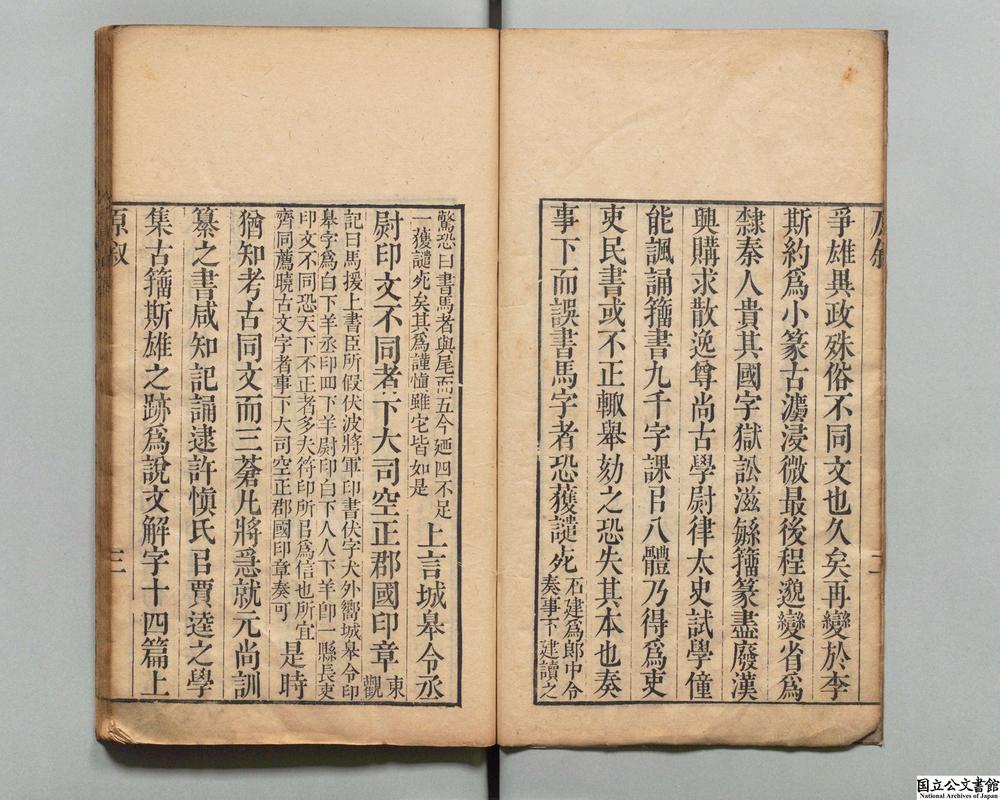 爭雄異政殊俗不同文也久矣再變於李
斯約爲小篆古灋浸微最後程邈變省爲
隸秦人貴其國字獄訟滋繇籀篆盡廢漢
興購求散逸尊尚古學尉律太史試學僮
能諷誦籀書九千字課㠯八體乃得爲吏
吏民書或不正輙舉劾之恐失其本也奏
事下而誤書馬字者恐獲譴死
石建爲郎中令
奏事下建讀之
驚恐曰書馬者與尾而五今廼四不足
一獲譴死矣其爲謹愼雖它皆如是
上言城皐令丞
尉印文不同者下大司空正郡國印章
東
觀
記曰馬援上書臣所假伏波將軍印書伏字犬外嚮城皐令印
皐字爲白下羊丞印四下羊尉印白下人人下羊卽一縣長吏
印文不同恐天下不正者多夫符印所㠯爲信也所宜
齊同薦曉古文字者事下大司空正郡國印章奏可
是時
猶知考古同文而三蒼凡將急就元尚訓
纂之書咸知記誦逮許愼氏㠯賈逵之學
集古籀斯雄之跡爲說文解字十四篇上
原敘
三
国立公文書館
National Archives of Japan